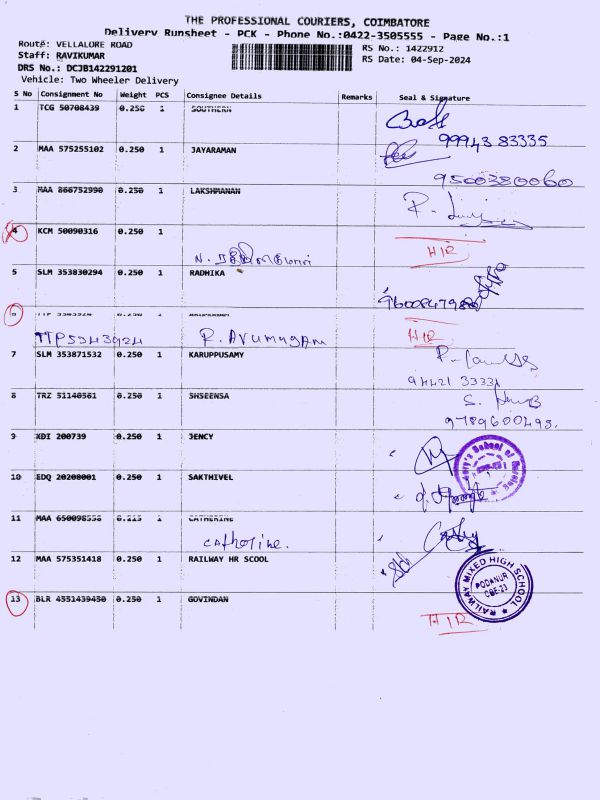 THE PROFESSIONAL COURIERS, COIMBATORE
Delivery Runsheet - PCK - Phone No.:0422-3505555 - Page No.:1
Route: VELLALORE ROAD
RS No.: 1422912
Staff: RAVIKUMAR
RS Date: 04-Sep-2024
DRS No.: DCJB142291201
Vehicle: Two Wheeler Delivery
S No Consignment No Weight PCS Consignee Details Remarks Seal & Signature
1 TCG 50708439 0.250 1 SOUTHERN
99943 83335
2 MAA 575255102 0.250 1 JAYARAMAN
9500380060
3 MAA 866752990 0.250 1 LAKSHMANAN
4 KCM 50090316 0.250 1
H/R
5 SLM 353830294 0.250 1 RADHIKA
6 0.250 1
H/R
TTP5343924 R. Arumugam
7 SLM 353871532 0.250 1 KARUPPUSAMY
8 TRZ 51140361 0.250 1 SHSEENSA
9789600498.
9 XDI 200739 0.250 1 JENCY
10 EDQ 20208001 0.250 1 SAKTHIVEL
11 MAA 650098558 0.215 1 CATHERINE
Catherine.
12 MAA 575351418 0.250 1 RAILWAY HR SCOOL
RAILWAY MIXED HIGH SCHOOL
PODANUR
CBE-23
13 BLR 4551439450 0.250 1 GOVINDAN
H/R